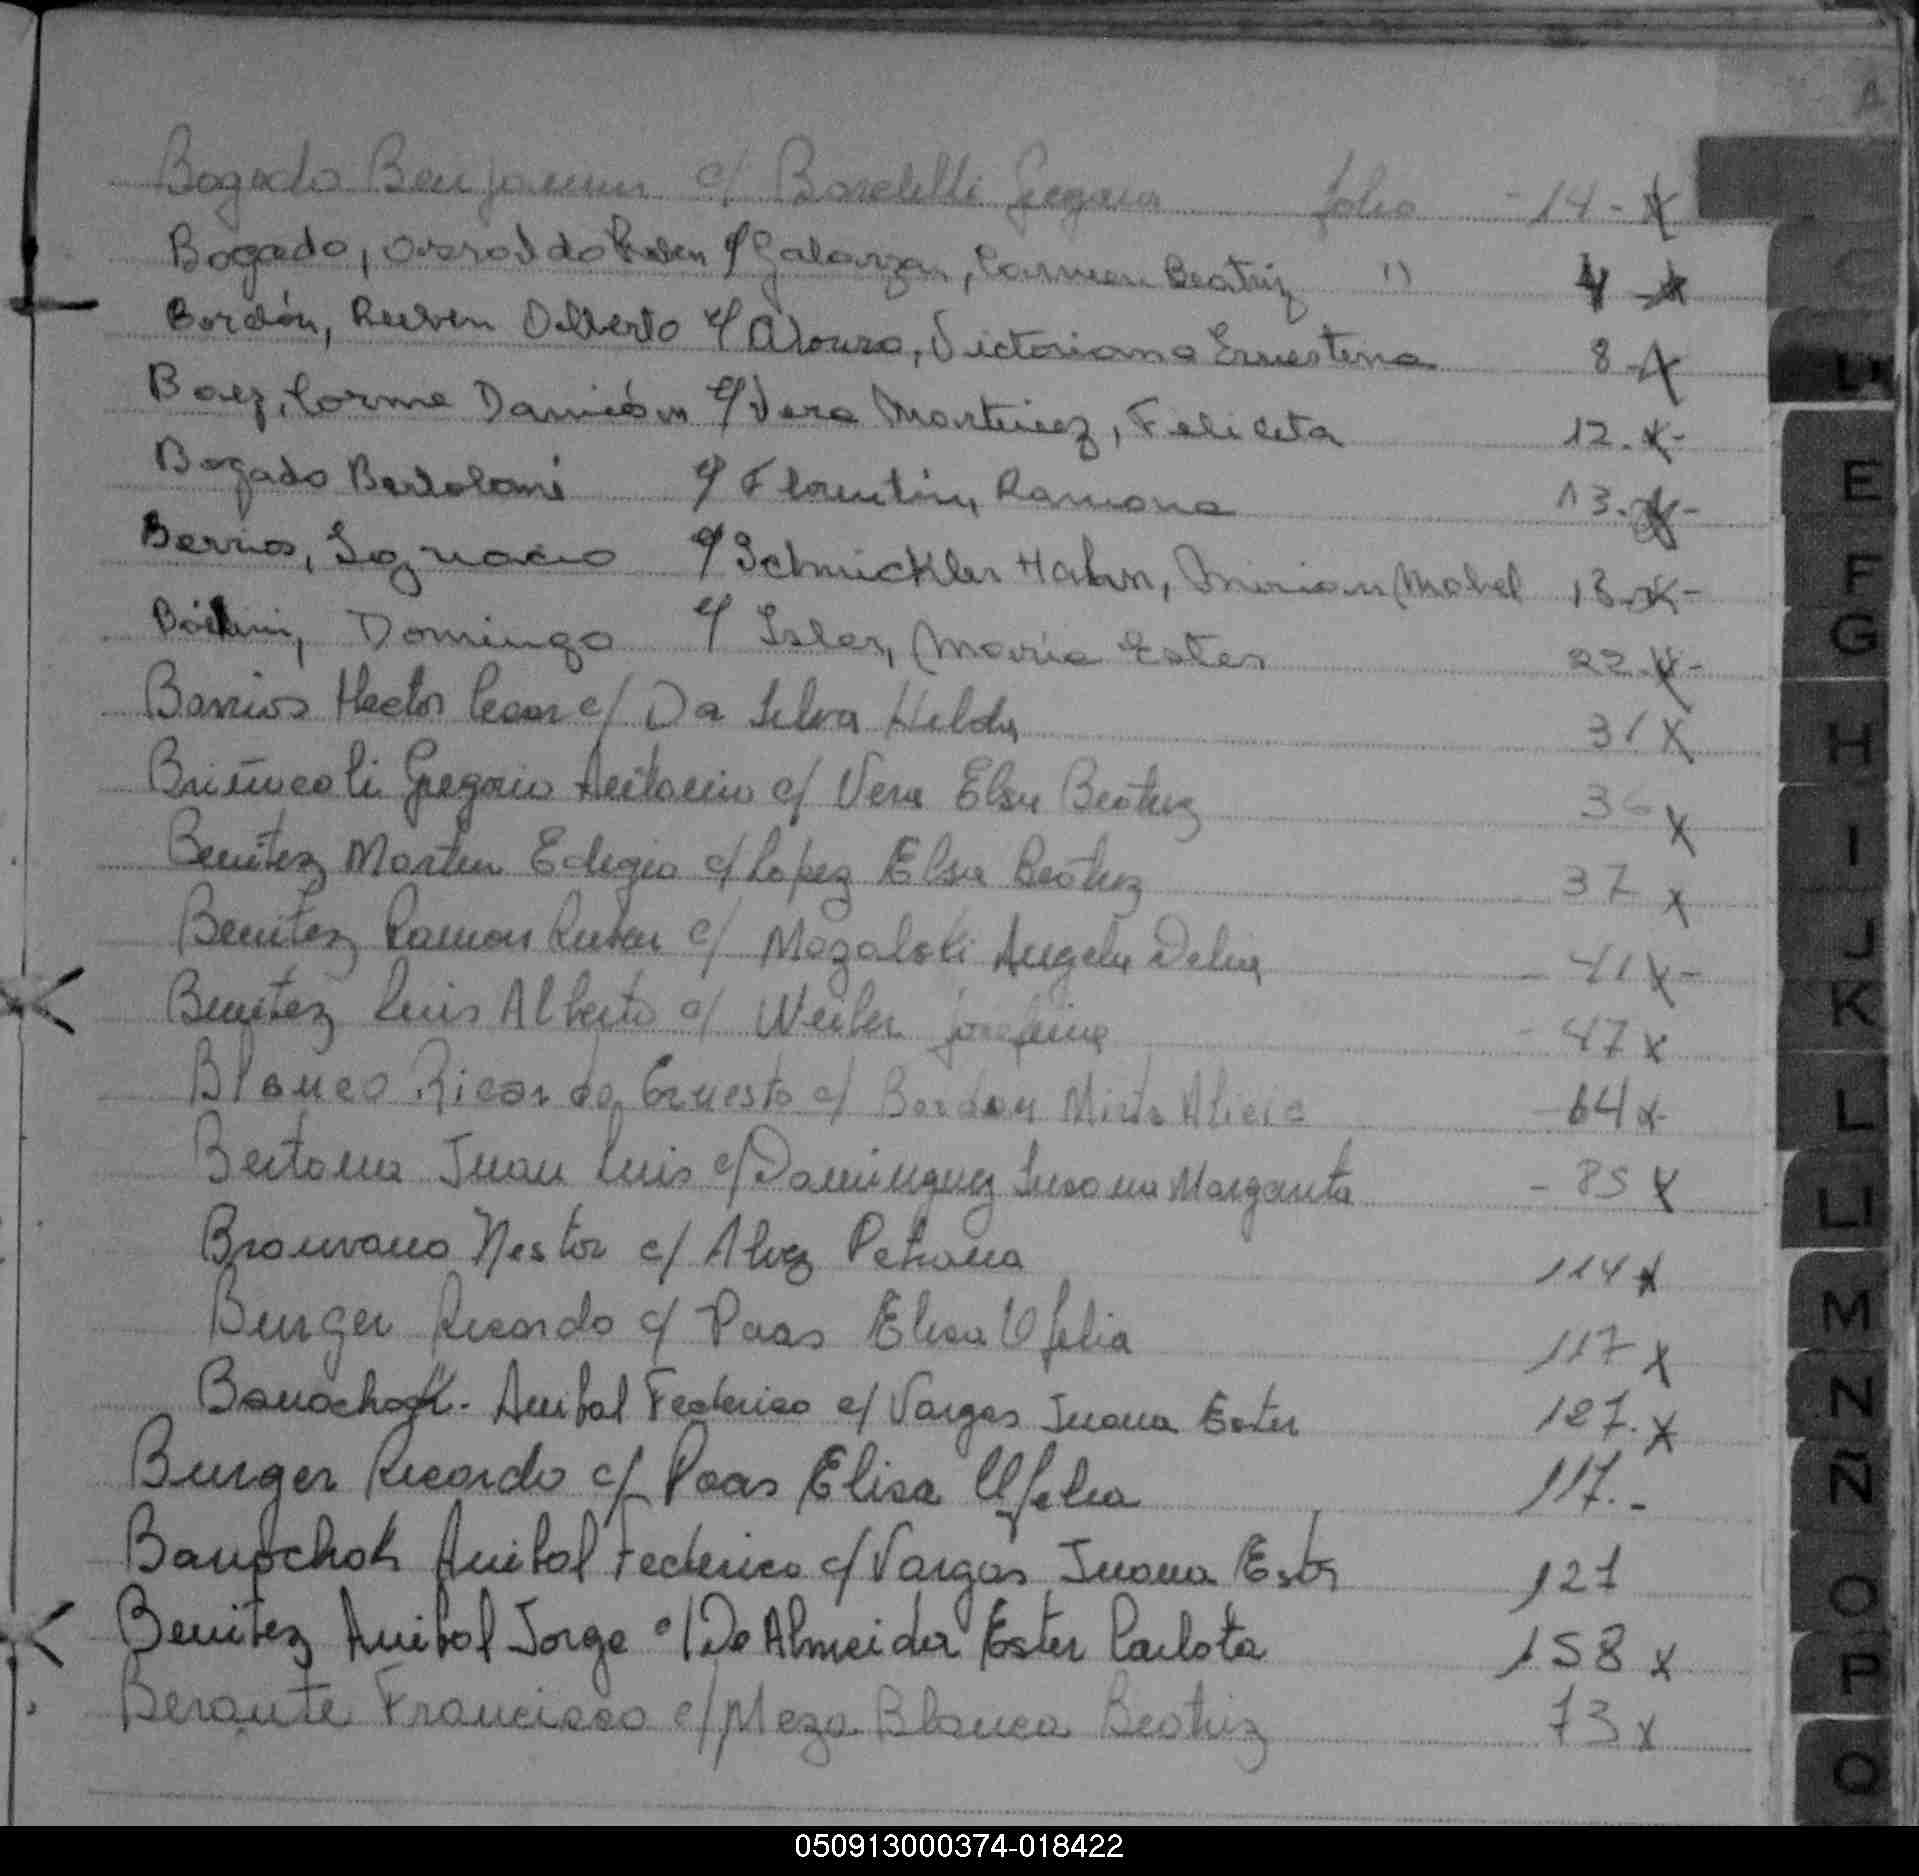 A
Bogado Benjamin c/ Bordelli Gregoria folio - 14 - x
Bogado, Osvaldo Ruben c/ Galarza, Carmen Beatriz " 4 - x
Bordón, Ruben Dilberto c/ Victoriana Ernestina 8 - x
Baez, Corme Damión c/ Vera Martinez, Feliceta 12. x -
Bogado Bartolomé c/ Florentin, Ramona 13. x -
Berrios, Ignacio c/ Schmickler Hahn, Mirian Mabel 13. x -
Domingo c/ Isler, Maria Ester 22. x -
Barrios Hector Cesar c/ Da Silva Hilda 31 x
Gregorio Antonio c/ Vera Elsa Beatriz 36 x
Benitez Martin Edigio c/ Lopez Elsa Beatriz 37 x
Benitez Ramon Ruben c/ Mazaloski Angela Delia - 41 x -
Benitez Luis Alberto c/ Weiler Josefina - 47 x
Blanco Ricardo Ernesto c/ Bordon Mirta Alicia - 64 x
Bertona Juan Luis c/ Dominguez Susana Margarita - 85 x
Nestor c/ Alvez Petrona 114 x
Burger Ricardo c/ Paas Elisa Ofelia 117 x
Banochok - Anibal Federico c/ Vargas Juana Ester 127. x
Burger Ricardo c/ Paas Elisa Ofelia 117. -
Banochok Anibal Federico c/ Vargas Juana Ester 127
Benitez Anibal Jorge c/ De Almeida Ester Carlota 158 x
Berante Francisco c/ Meza Blanca Beatriz 73 x
C
D
E
F
G
H
I
J
K
L
LL
M
N
Ñ
O
P
Q
050913000374-018422